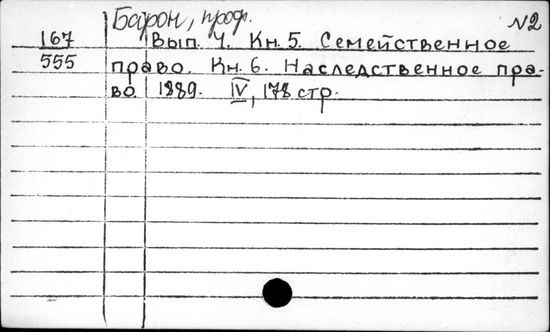 Барон, проф. №2
167 Вып. 4. Кн. 5. Семейственное
555 право. Кн. 6. Наследственное пра-
во 1889. IV, 178 стр.